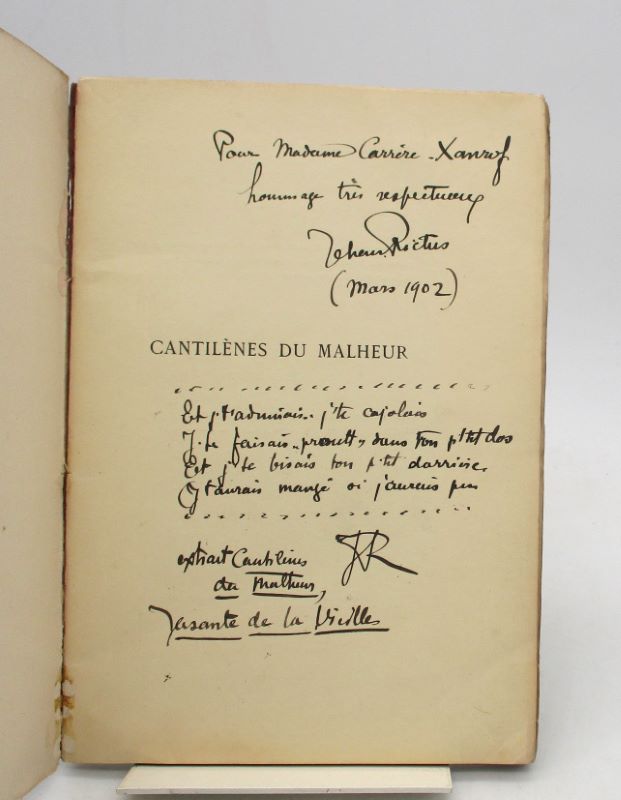 Pour Madame Carrère-Xanrof
hommage très respectueux
Jehan Rictus
(Mars 1902)
CANTILÈNES DU MALHEUR
Et j't'admirais.. j'te cajolais
J'te faisais "proutt" dans ton p'tit dos
Et j'te bisais ton p'tit darrière.
J't'aurais mangé si j'aurais pu
extrait Cantilènes
du Malheur,
JR
Jasante de la Vieille